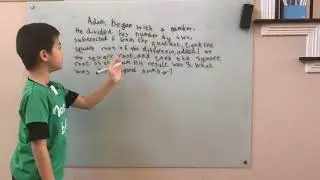 Adam began with a number.
He divided his number by two,
subtracted 6 from the quotient, took the
square root of the difference, added 1 to
the square root, and took the square
root of the sum. His result was 3. What
was number?